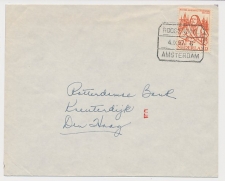 AMSTERDAM
Rotterdamse Bank
Kneuterdijk
Den Haag
E